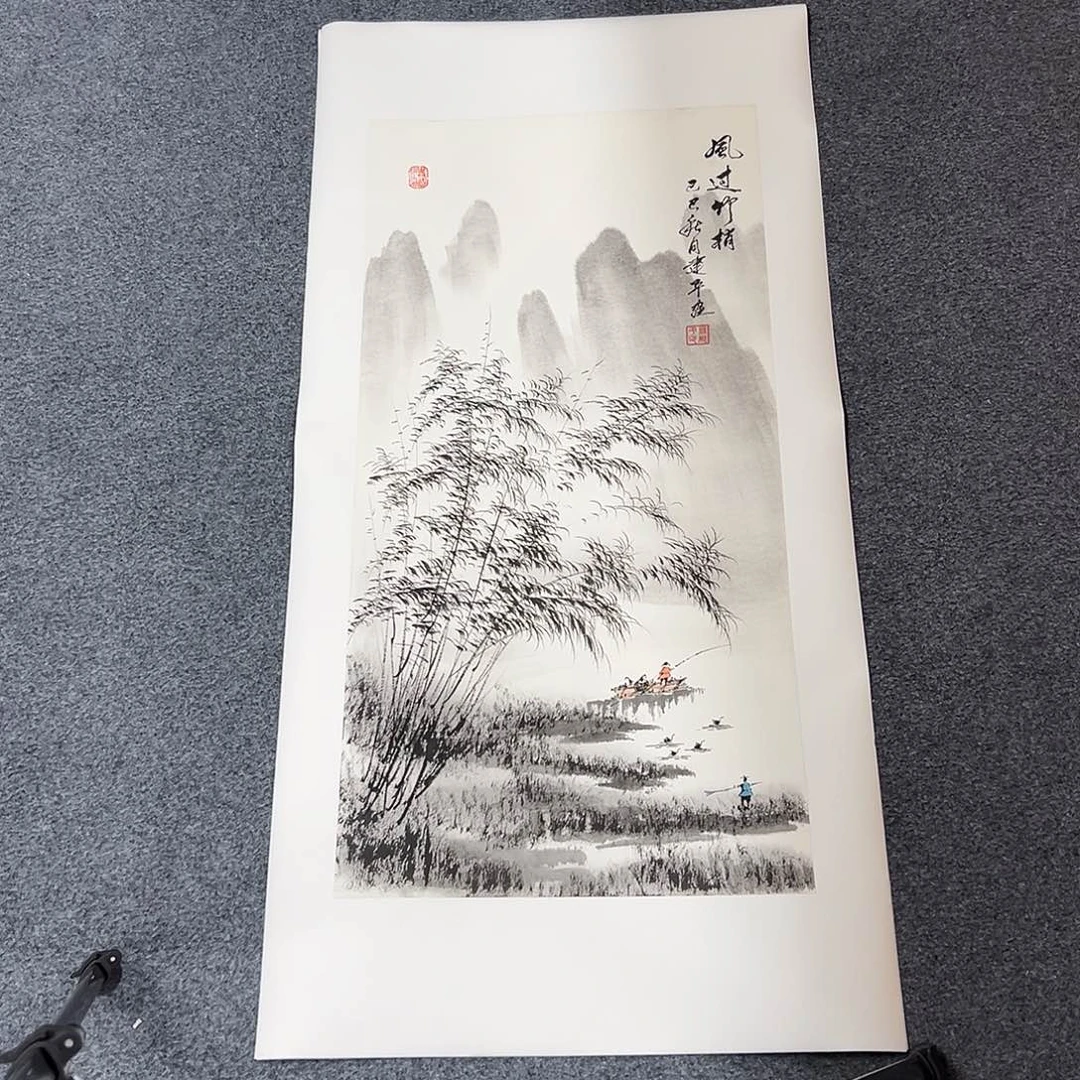 風过竹梢
己巳秋月建平